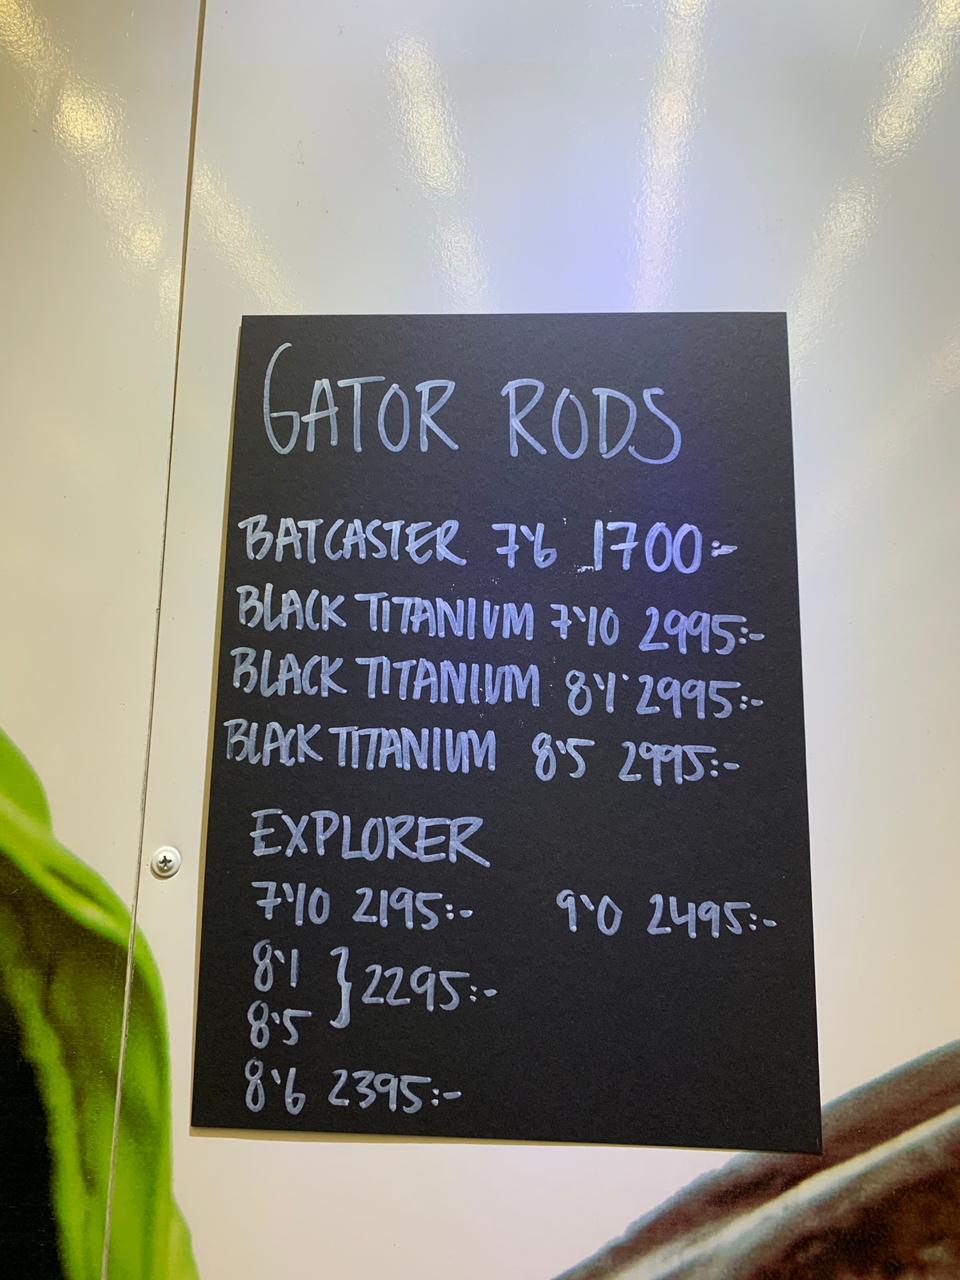 GATOR RODS
BATCASTER 7'6 1700:-
BLACK TITANIUM 7'10 2995:-
BLACK TITANIUM 8'1 2995:-
BLACK TITANIUM 8'5 2995:-
EXPLORER
7'10 2195:- 9'0 2495:-
8'1
} 2295:-
8'5
8'6 2395:-